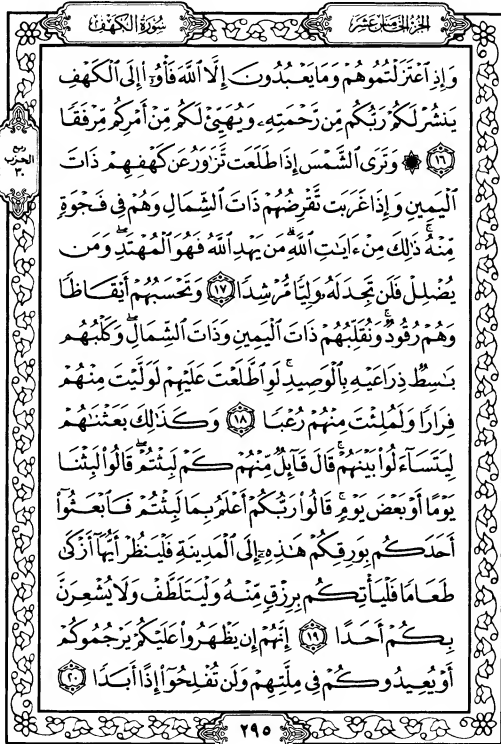 الجزء الخامس عشر
سورة الكهف
وَإِذِ ٱعْتَزَلْتُمُوهُمْ وَمَا يَعْبُدُونَ إِلَّا ٱللَّهَ فَأْوُۥٓا۟ إِلَى ٱلْكَهْفِ
يَنشُرْ لَكُمْ رَبُّكُم مِّن رَّحْمَتِهِۦ وَيُهَيِّئْ لَكُم مِّنْ أَمْرِكُم مِّرْفَقًا
١٦ ۞ وَتَرَى ٱلشَّمْسَ إِذَا طَلَعَت تَّزَٰوَرُ عَن كَهْفِهِمْ ذَاتَ
ربع
الحزب
٣٠
ٱلْيَمِينِ وَإِذَا غَرَبَت تَّقْرِضُهُمْ ذَاتَ ٱلشِّمَالِ وَهُمْ فِى فَجْوَةٍ
مِّنْهُ ۚ ذَٰلِكَ مِنْ ءَايَٰتِ ٱللَّهِ ۗ مَن يَهْدِ ٱللَّهُ فَهُوَ ٱلْمُهْتَدِ ۖ وَمَن
يُضْلِلْ فَلَن تَجِدَ لَهُۥ وَلِيًّا مُّرْشِدًا ١٧ وَتَحْسَبُهُمْ أَيْقَاظًا
وَهُمْ رُقُودٌ ۚ وَنُقَلِّبُهُمْ ذَاتَ ٱلْيَمِينِ وَذَاتَ ٱلشِّمَالِ ۖ وَكَلْبُهُم
بَٰسِطٌ ذِرَاعَيْهِ بِٱلْوَصِيدِ ۚ لَوِ ٱطَّلَعْتَ عَلَيْهِمْ لَوَلَّيْتَ مِنْهُمْ
فِرَارًا وَلَمُلِئْتَ مِنْهُمْ رُعْبًا ١٨ وَكَذَٰلِكَ بَعَثْنَٰهُمْ
لِيَتَسَآءَلُوا۟ بَيْنَهُمْ ۚ قَالَ قَآئِلٌ مِّنْهُمْ كَمْ لَبِثْتُمْ ۖ قَالُوا۟ لَبِثْنَا
يَوْمًا أَوْ بَعْضَ يَوْمٍ ۚ قَالُوا۟ رَبُّكُمْ أَعْلَمُ بِمَا لَبِثْتُمْ فَٱبْعَثُوٓا۟
أَحَدَكُم بِوَرِقِكُمْ هَٰذِهِۦٓ إِلَى ٱلْمَدِينَةِ فَلْيَنظُرْ أَيُّهَآ أَزْكَىٰ
طَعَامًا فَلْيَأْتِكُم بِرِزْقٍ مِّنْهُ وَلْيَتَلَطَّفْ وَلَا يُشْعِرَنَّ
بِكُمْ أَحَدًا ١٩ إِنَّهُمْ إِن يَظْهَرُوا۟ عَلَيْكُمْ يَرْجُمُوكُمْ
أَوْ يُعِيدُوكُمْ فِى مِلَّتِهِمْ وَلَن تُفْلِحُوٓا۟ إِذًا أَبَدًا ٢٠
٢٩٥